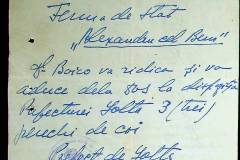 Ferma de Stat
"Alexandru cel Bun"
Boico va ridica și va
aduce dela sos la dispoziția
Prefecturei Balta 3 (trei)
perechi de cai
Prefect de Balta